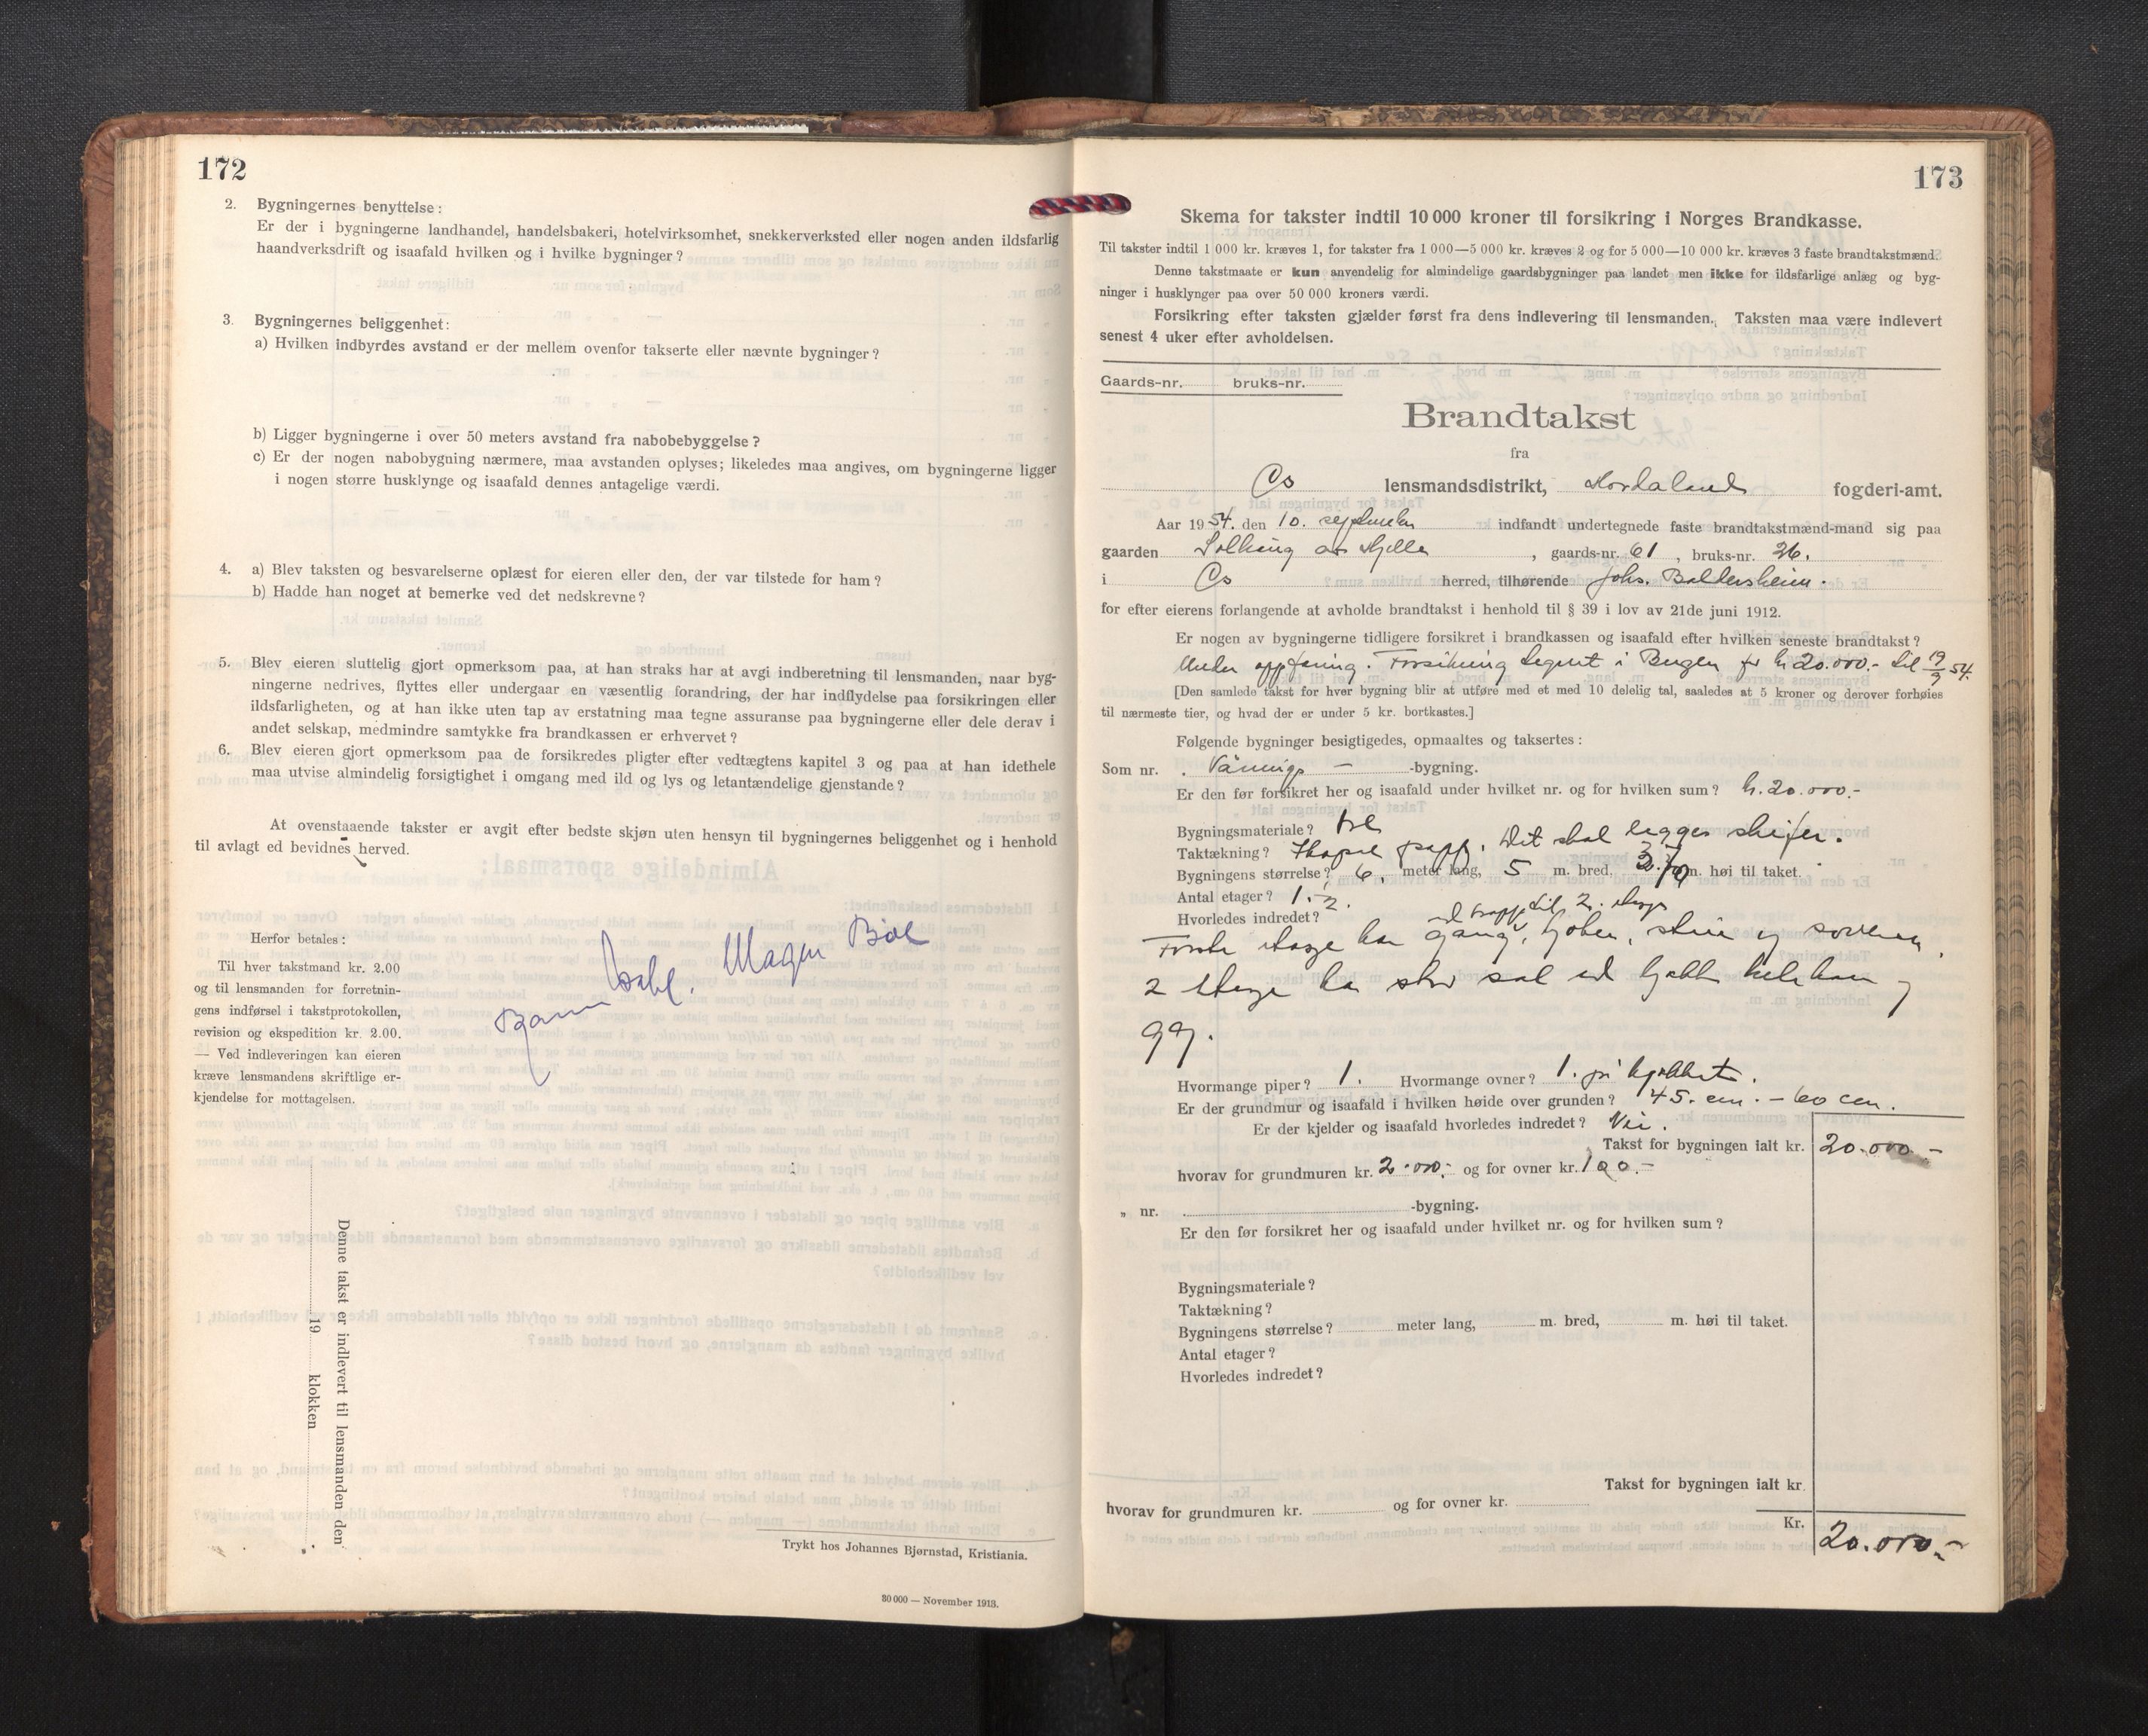 172
2. Bygningernes benyttelse:
Er der i bygningerne landhandel, handelsbakeri, hotelvirksomhet, snekkerverksted eller nogen anden ildsfarlig
haandverksdrift og isaafald hvilken og i hvilke bygninger?
3. Bygningernes beliggenhet:
a) Hvilken indbyrdes avstand er der mellem ovenfor takserte eller nævnte bygninger?
b) Ligger bygningerne i over 50 meters avstand fra nabobebyggelse?
c) Er der nogen nabobygning nærmere, maa avstanden oplyses; likeledes maa angives, om bygningerne ligger
i nogen større husklynge og isaafald dennes antagelige værdi.
4. a) Blev taksten og besvarelserne oplæst for eieren eller den, der var tilstede for ham?
b) Hadde han noget at bemerke ved det nedskrevne?
5. Blev eieren sluttelig gjort opmerksom paa, at han straks har at avgi indberetning til lensmanden, naar byg-
ningerne nedrives, flyttes eller undergaar en væsentlig forandring, der har indflydelse paa forsikringen eller
ildsfarligheten, og at han ikke uten tap av erstatning maa tegne assuranse paa bygningerne eller dele derav i
andet selskap, medmindre samtykke fra brandkassen er erhvervet?
6. Blev eieren gjort opmerksom paa de forsikredes pligter efter vedtægtens kapitel 3 og paa at han idethele
maa utvise almindelig forsigtighet i omgang med ild og lys og letantændelige gjenstande?
At ovenstaaende takster er avgit efter bedste skjøn uten hensyn til bygningernes beliggenhet og i henhold
til avlagt ed bevidnes herved.
Herfor betales:
Til hver takstmand kr. 2.00
og til lensmanden for forretnin-
gens indførsel i takstprotokollen,
revision og ekspedition kr. 2.00.
— Ved indleveringen kan eieren
kræve lensmandens skriftlige er-
kjendelse for mottagelsen.
Denne takst er indlevert til lensmanden den
19 klokken
Trykt hos Johannes Bjørnstad, Kristiania.
30 000 — November 1913.
173
Skema for takster indtil 10 000 kroner til forsikring i Norges Brandkasse.
Til takster indtil 1 000 kr. kræves 1, for takster fra 1 000—5 000 kr. kræves 2 og for 5 000—10 000 kr. kræves 3 faste brandtakstmænd.
Denne takstmaate er kun anvendelig for almindelige gaardsbygninger paa landet men ikke for ildsfarlige anlæg og byg-
ninger i husklynger paa over 50 000 kroners værdi.
Forsikring efter taksten gjælder først fra dens indlevering til lensmanden. Taksten maa være indlevert
senest 4 uker efter avholdelsen.
Gaards-nr. bruks-nr.
Brandtakst
fra
Os lensmandsdistrikt, Hordaland fogderi-amt.
Aar 1954. den 10. september indfandt undertegnede faste brandtakstmænd-mand sig paa
gaarden Solhaug av Hjelle, gaards-nr. 61, bruks-nr. 26.
i Os herred, tilhørende Johs. Baldersheim.
for efter eierens forlangende at avholde brandtakst i henhold til § 39 i lov av 21de juni 1912.
Er nogen av bygningerne tidligere forsikret i brandkassen og isaafald efter hvilken seneste brandtakst?
Under oppføring. Forsikring tegnet i Bergen for kr 20.000.- til 19/9 54.
[Den samlede takst for hver bygning blir at utføre med et med 10 delelig tal, saaledes at 5 kroner og derover forhøies
til nærmeste tier, og hvad der er under 5 kr. bortkastes.]
Følgende bygninger besigtigedes, opmaaltes og taksertes:
Som nr. Vånings — -bygning.
Er den før forsikret her og isaafald under hvilket nr. og for hvilken sum? kr. 20.000.-
Bygningsmateriale? tre
Taktækning? papp. Det skal legges skifer.
Bygningens størrelse? 6, meter lang, 5 m. bred, m. høi til taket.
Antal etager? 1. ½.
Hvorledes indredet? ed trapp til 2. etage
Første etage har gang, kjøken, stue og soverom
2 etage har stor sal
gg.
Hvormange piper? 1. Hvormange ovner? 1. på kjøkket.
Er der grundmur og isaafald i hvilken høide over grunden? 45. cm. - 60 cm.
Er der kjelder og isaafald hvorledes indredet? Nei.
Takst for bygningen ialt kr. 20.000.-
hvorav for grundmuren kr. 2.000.- og for ovner kr. 100.-
„ nr. -bygning.
Er den før forsikret her og isaafald under hvilket nr. og for hvilken sum?
Bygningsmateriale?
Taktækning?
Bygningens størrelse? meter lang, m. bred, m. høi til taket.
Antal etager?
Hvorledes indredet?
Takst for bygningen ialt kr.
hvorav for grundmuren kr. og for ovner kr.
Kr. 20.000.-